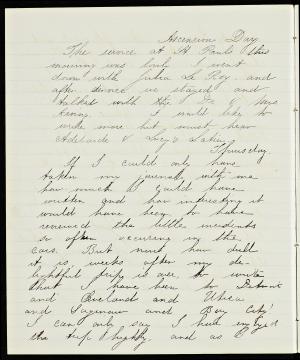 Ascension Day
The service at St Pauls this
morning was lovely I went
down with Julia Le Roy and
after service we stayed and
talked with the Dr & Mrs
I would like to
write more but must hear
Adelaide & Lucy's Latin
Thursday
If I could only have
taken my journal with me
how much I could have
written and how interesting it
would have been to have
reviewed the little incidents
so often occuring in the
cars. But now how dull
it is, weeks after my de-
lightful trip is over, to write
that I have been to Detroit
and and Utica
and Saginaw and Bay City
I can only say I have enjoyed
the trip highly. and as I